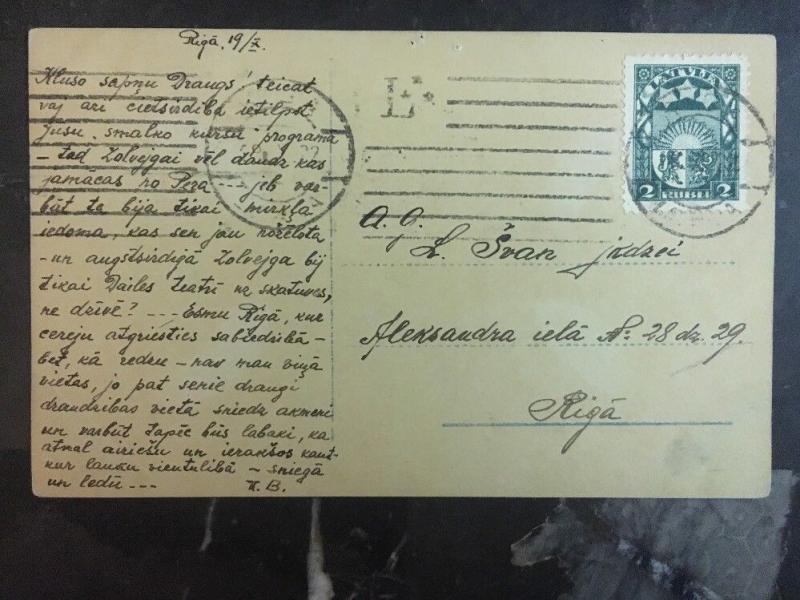 Rigā, 19/X.
Kluso sapņu Draugs! teicat
vaj arī cietsirdība ietilpst
Jūsu smalko kursu programā
– tad Zolvejgai vēl daudz kas
jāmācas no Pera --- jeb var-
būt tā bija tikai mirkļa
iedoma, kas sen jau nožēlota
– un augstsirdīgā Zolvejga bij
tikai Dailes teatrī uz skatuves,
ne dzīvē? --- Esmu Rīgā, kur
cerēju atgriesties sabiedrībā –
bet, kā redzu – nav man viņā
vietas, jo pat senie draugi
draudzības vietā sniedz akmeni
un varbūt tapēc būs labaki, ka
atkal aiziešu un ierakšos kaut-
kur lauku vientulībā – sniegā
un ledū ---
K. B.
LATVIJA
2 2
RUBĻI
A. g.
L. Švan jkdzei
Aleksandra ielā № 28 dz. 29.
Rigā